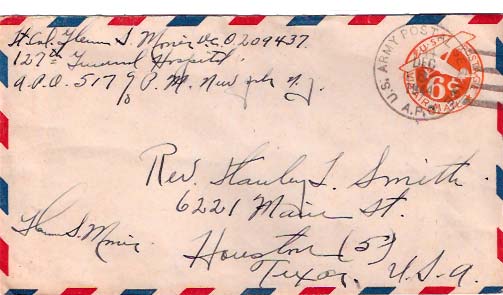 Lt. Col. Glenn S. Mosier V.C. O 209437.
127th General Hospital
A.P.O. 517 c/o P.M. New York N.Y.
U.S. ARMY POST
DEC
A.P.O.
U.S. POSTAGE
6¢
AIR MAIL
Rev. Stanley L. Smith
6221 Main St.
Houston (5)
Texas, U.S.A.